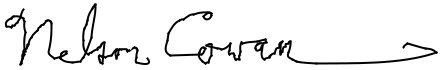 Nelson Cowan